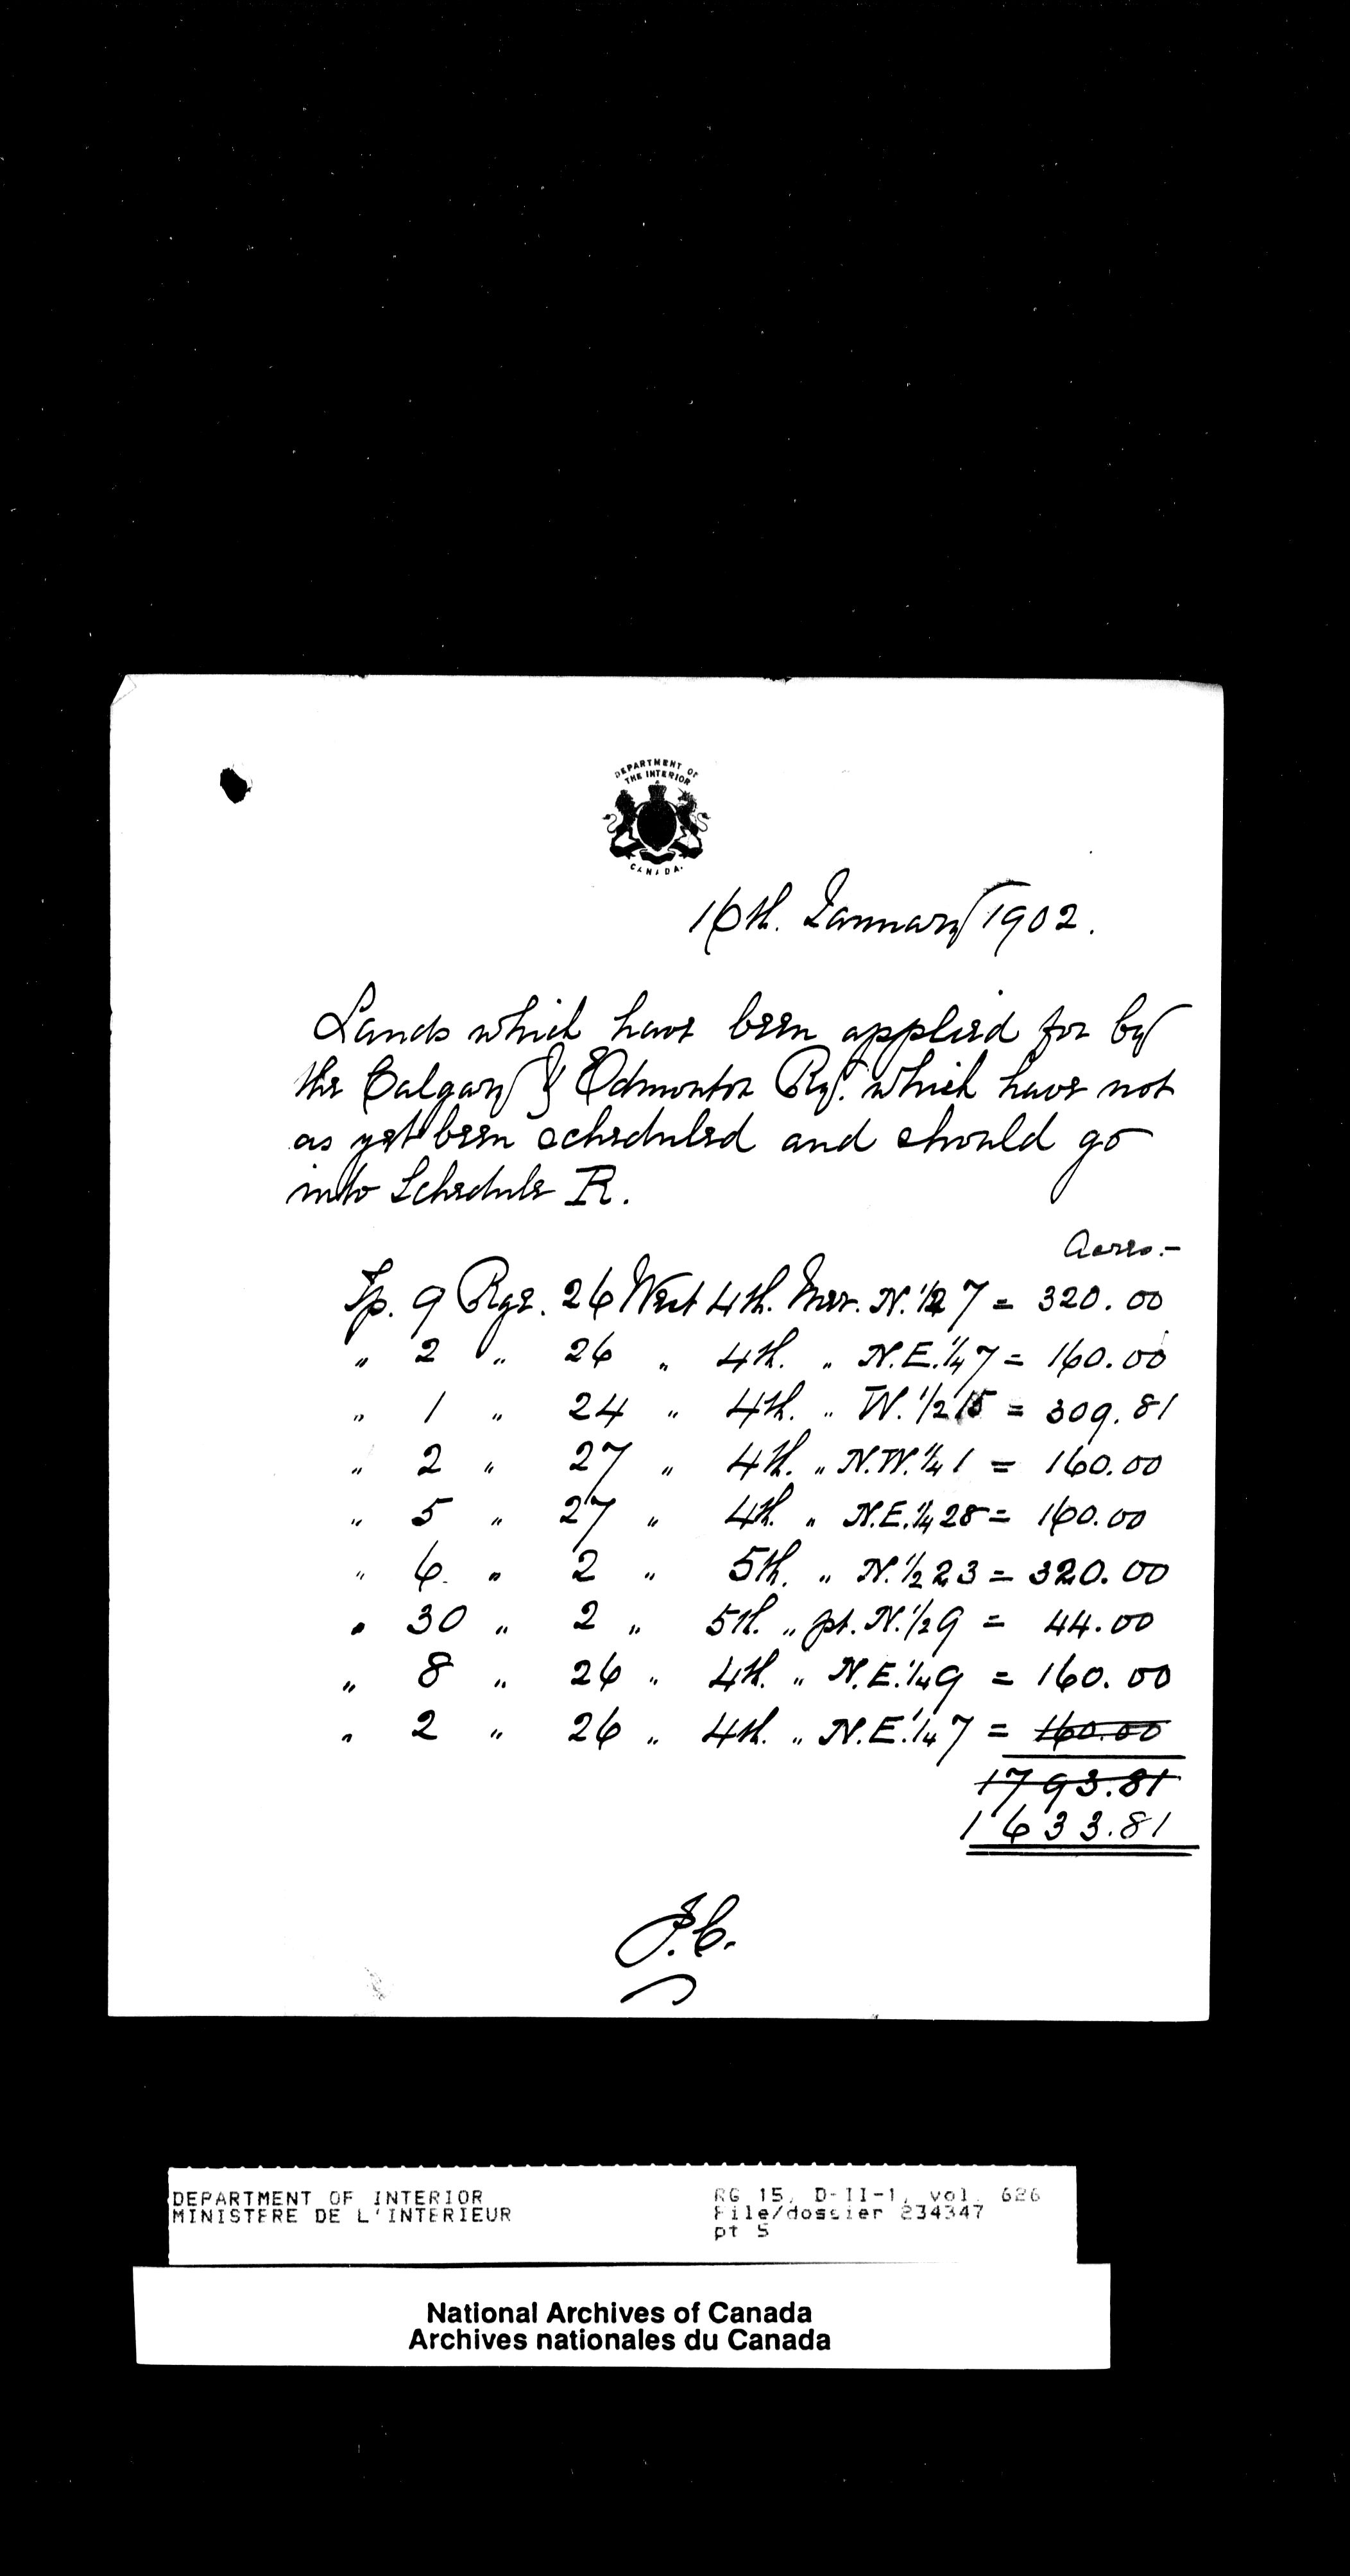 DEPARTMENT OF
THE INTERIOR
CANADA.
16th. January 1902.
Lands which have been applied for by
the Calgary & Edmonton Ry. which have not
as yet been scheduled and should go
into Schedule R.
Acres.-
Tp. 9 Rge. 26 West 4th. Mer. N. 1/2 7 = 320.00
" 2 " 26 " 4th. " N.E. 1/4 7 = 160.00
" 1 " 24 " 4th. " W. 1/2 15 = 309.81
" 2 " 27 " 4th. " N.W. 1/4 1 = 160.00
" 5 " 27 " 4th. " N.E. 1/4 28 = 160.00
" 6. " 2 " 5th. " N. 1/2 23 = 320.00
" 30 " 2 " 5th. " pt. N. 1/2 9 = 44.00
" 8 " 26 " 4th. " N.E. 1/4 9 = 160.00
" 2 " 26 " 4th. " N.E. 1/4 7 = 160.00
1793.81
1633.81
J.C.
DEPARTMENT OF INTERIOR RG 15, D-II-1, vol. 626
MINISTERE DE L'INTERIEUR File/dossier 234347
pt 5
National Archives of Canada
Archives nationales du Canada